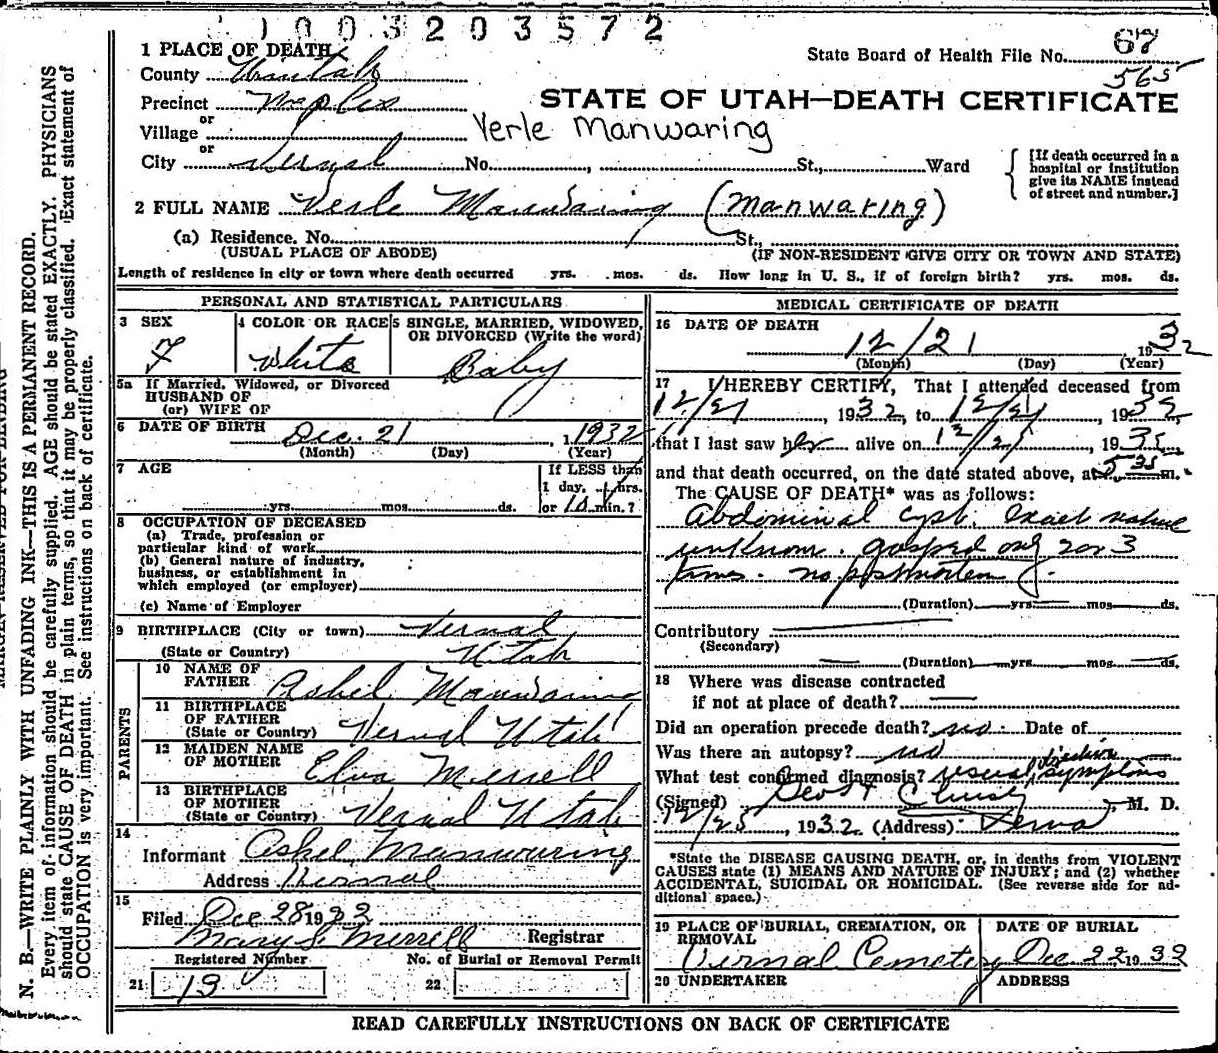 1003203572
1 PLACE OF DEATH
State Board of Health File No. 67
565
County Uintah
Precinct Maples
or
Village
or
City Vernal No. , St., Ward
STATE OF UTAH—DEATH CERTIFICATE
Verle Manwaring
[If death occurred in a
hospital or institution
give its NAME instead
of street and number.]
2 FULL NAME Verle Manwaring (Manwaring)
(a) Residence. No. St.,
(USUAL PLACE OF ABODE) (IF NON-RESIDENT GIVE CITY OR TOWN AND STATE)
Length of residence in city or town where death occurred yrs. mos. ds. How long in U. S., if of foreign birth? yrs. mos. ds.
PERSONAL AND STATISTICAL PARTICULARS
3 SEX
F
4 COLOR OR RACE
White
5 SINGLE, MARRIED, WIDOWED,
OR DIVORCED (Write the word)
Baby
5a If Married, Widowed, or Divorced
HUSBAND OF
(or) WIFE OF
6 DATE OF BIRTH Dec. 21, 1932
(Month) (Day) (Year)
7 AGE
yrs. mos. ds.
If LESS than
1 day, hrs.
or 10 min.?
8 OCCUPATION OF DECEASED
(a) Trade, profession or
particular kind of work
(b) General nature of industry,
business, or establishment in
which employed (or employer)
(c) Name of Employer
9 BIRTHPLACE (City or town) Vernal
(State or Country) Utah
PARENTS
10 NAME OF
FATHER Ashel Manwaring
11 BIRTHPLACE
OF FATHER
(State or Country) Vernal Utah
12 MAIDEN NAME
OF MOTHER Elva Merrell
13 BIRTHPLACE
OF MOTHER
(State or Country) Vernal Utah
14
Informant Ashel Manwaring
Address Vernal
15
Filed Dec 28 1932
Mary S. Merrell Registrar
Registered Number No. of Burial or Removal Permit
21 13 22
MEDICAL CERTIFICATE OF DEATH
16 DATE OF DEATH
12/21 1932
(Month) (Day) (Year)
17 I HEREBY CERTIFY, That I attended deceased from
12/21, 1932, to 12/21, 1932,
that I last saw her alive on 12/21, 1932,
and that death occurred, on the date stated above, at 5 35 m.
The CAUSE OF DEATH* was as follows:
Abdominal cyst. Exact nature
unknown. gasped only 2 or 3
times. no postmortem
(Duration) yrs. mos. ds.
Contributory
(Secondary)
(Duration) yrs. mos. ds.
18 Where was disease contracted
if not at place of death?
Did an operation precede death? no Date of
Was there an autopsy? no
What test confirmed diagnosis? usual objective symptoms
(Signed) M. D.
12/25, 1932 (Address) Vernal
*State the DISEASE CAUSING DEATH, or, in deaths from VIOLENT
CAUSES state (1) MEANS AND NATURE OF INJURY; and (2) whether
ACCIDENTAL, SUICIDAL OR HOMICIDAL. (See reverse side for ad-
ditional space.)
19 PLACE OF BURIAL, CREMATION, OR
REMOVAL
Vernal Cemetery
DATE OF BURIAL
Dec 22 1932
20 UNDERTAKER ADDRESS
READ CAREFULLY INSTRUCTIONS ON BACK OF CERTIFICATE
N. B.—WRITE PLAINLY WITH UNFADING INK—THIS IS A PERMANENT RECORD.
Every item of information should be carefully supplied. AGE should be stated EXACTLY. PHYSICIANS
should state CAUSE OF DEATH in plain terms, so that it may be properly classified. Exact statement of
OCCUPATION is very important. See instructions on back of certificate.